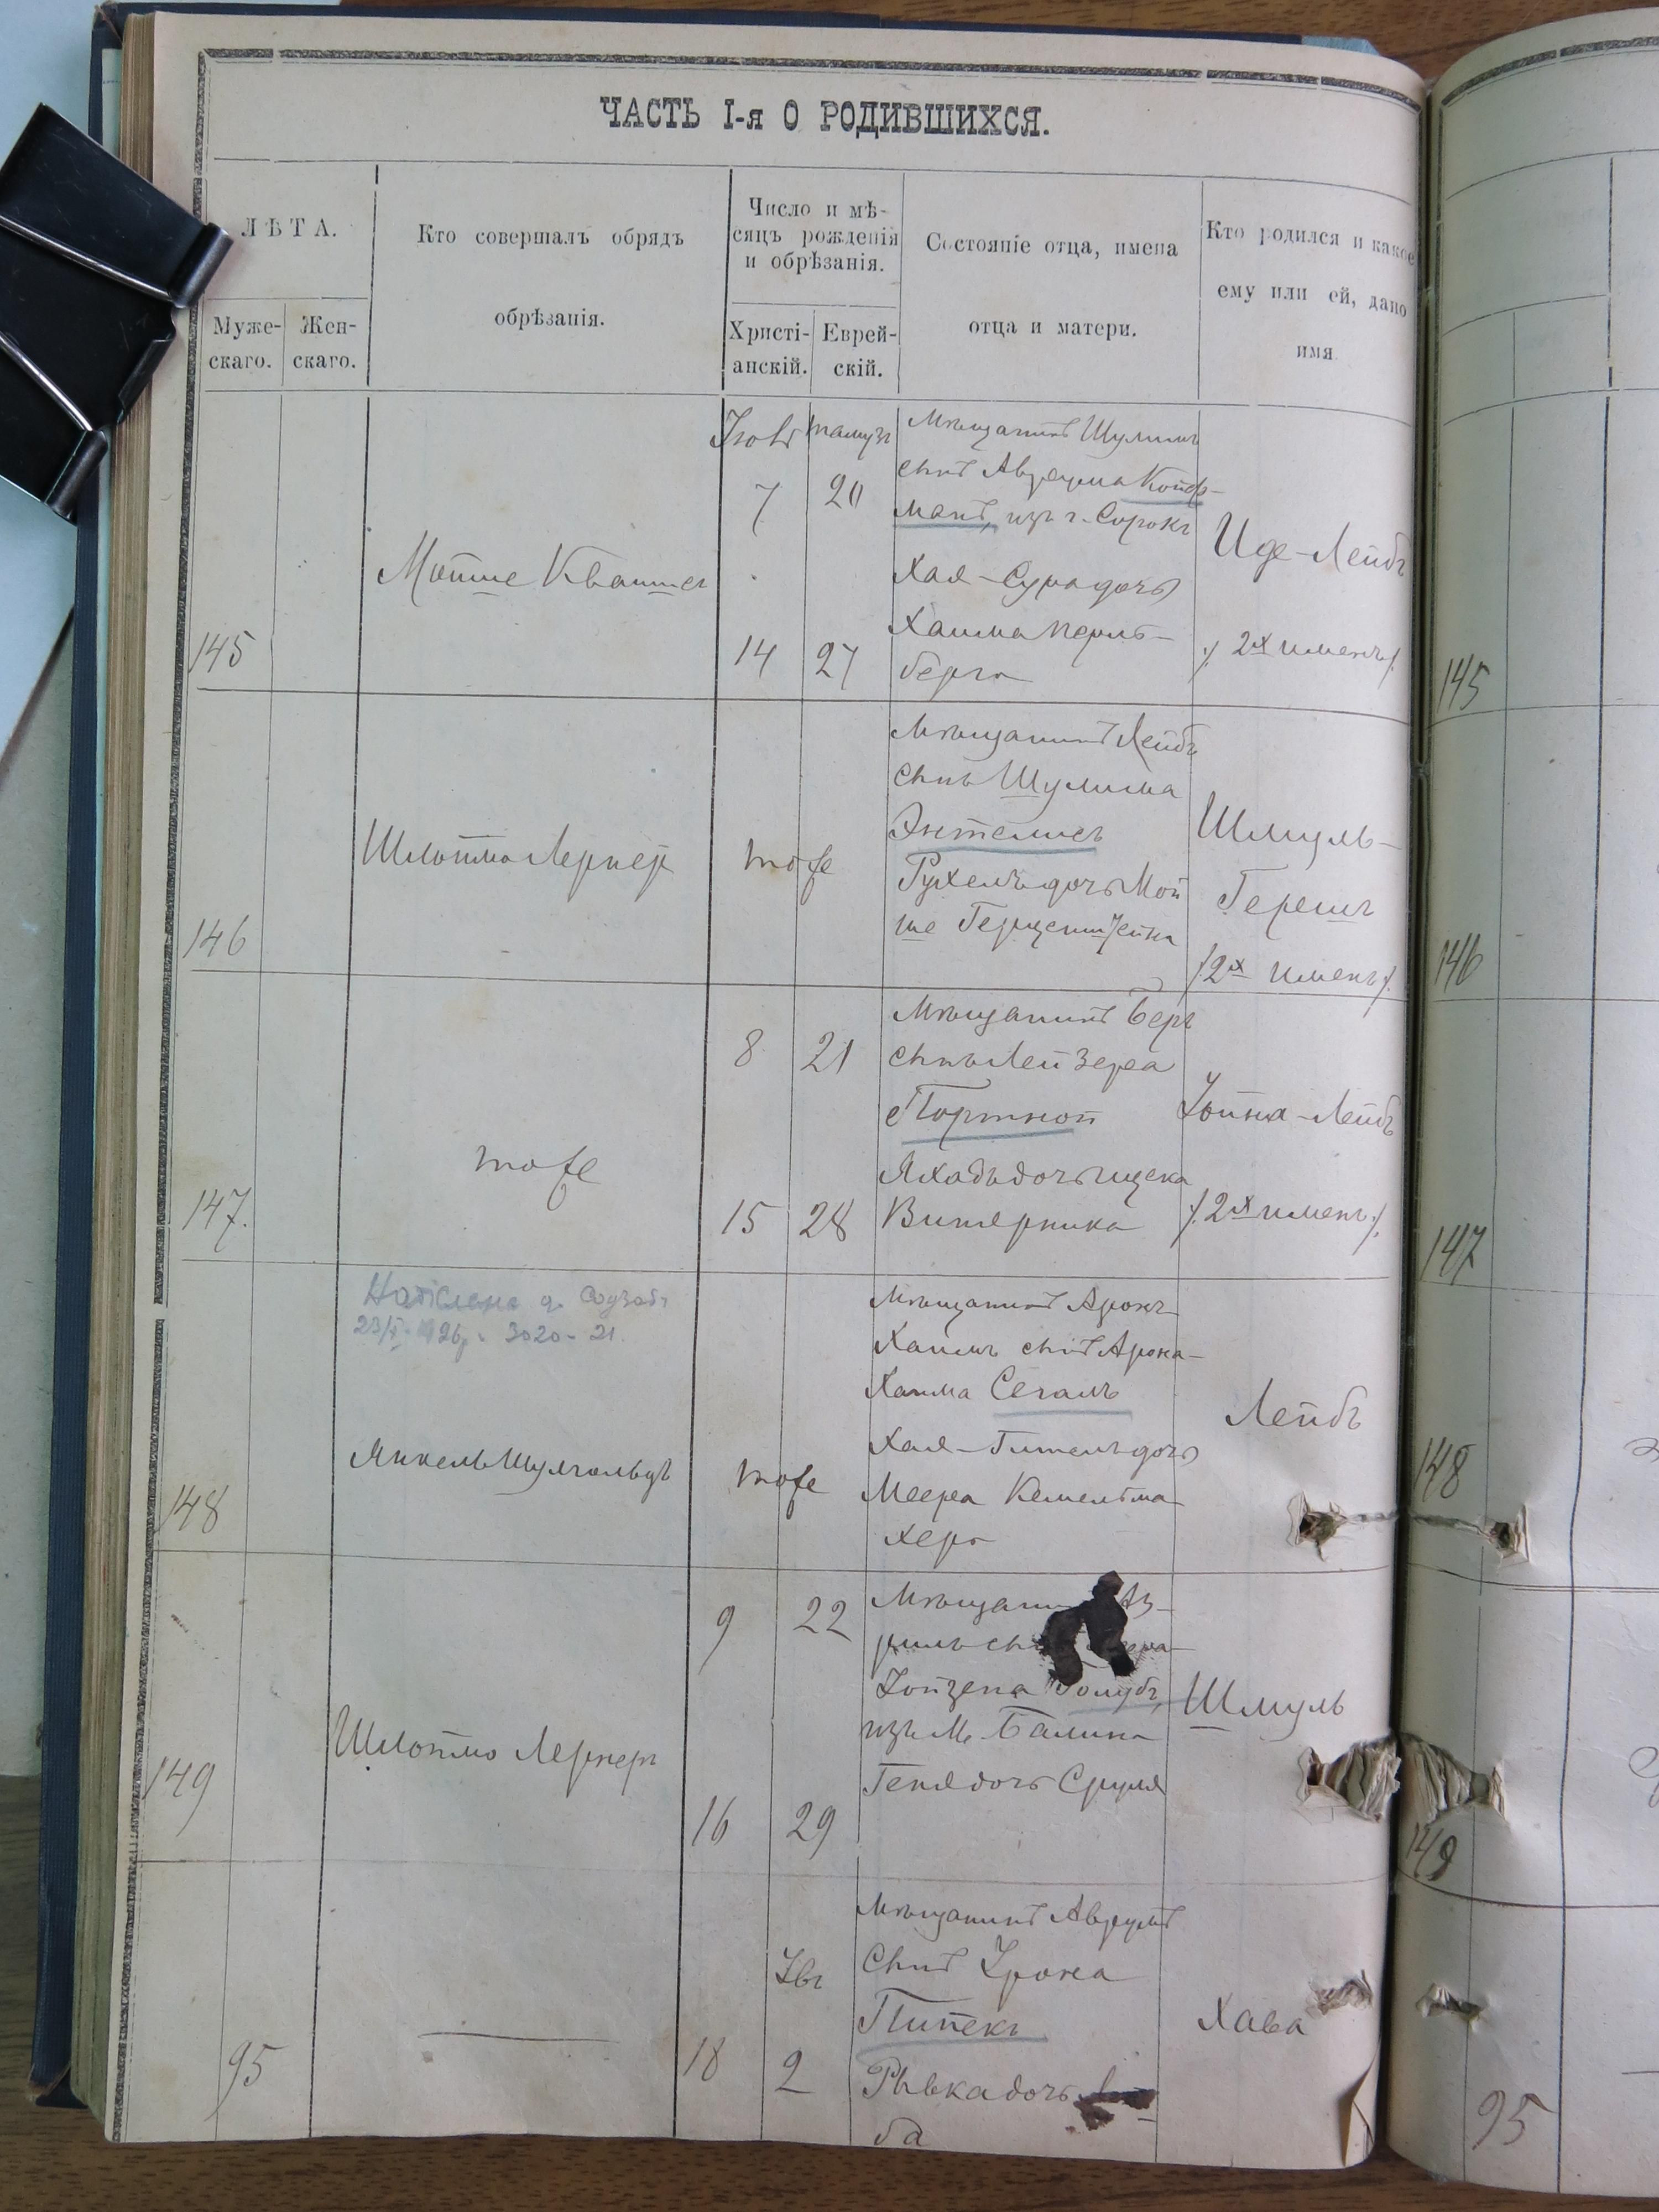 ЧАСТЬ I-я О РОДИВШИХСЯ.
ЛѢТА.
Муже-
скаго.
Жен-
скаго.
Кто совершалъ обрядъ
обрѣзанія.
Число и мѣ-
сяцъ рожденія
и обрѣзанія.
Христі-
анскій.
Еврей-
скій.
Состояніе отца, имена
отца и матери.
Кто родился и какое
ему или ей, дано
имя
145
Мойше
Іюль
7
14
тамузъ
20
27
Мѣщанинъ Шулимъ
сынъ Авруума Койф-
манъ, изъ г. Сорокъ
Хая-Сура дочь
Хаима Перль-
берга
Иде-Лейбъ
/. 2х именъ /.
145
146
Шлойма Лернеръ
тоже
Мѣщанинъ Лейбъ
сынъ Шулима
Энтелисъ
Рухель дочь Мой
ше Герценштейна
Шмуль-
Гершъ
/. 2х именъ /.
146
147.
тоже
8
15
21
28
Мѣщанинъ Беръ
сынъ Лейзера
Портной
дочь Ицека
Витерника
Іойна-Лейбъ
/. 2х именъ /.
147
148
23/V-1926 г. 3020-21.
Янкель Шулгольцъ
тоже
Мѣщанинъ Аронъ-
Хаимъ сынъ Арона-
Хаима Сегалъ
Хая-Гитель дочь
Меера Кесельма-
хера
Лейбъ
148
149
Шлоймо Лернеръ
9
16
22
29
Мѣщанинъ Аз-
риль сынъ
Іойзепа Голубъ,
изъ м. Балина
Геня дочь Сруля
Шмуль
149
95
18
Явъ
2
Мѣщанинъ Аврумъ
сынъ Арона
Пипекъ
Рывка дочь
ба
Хава
95